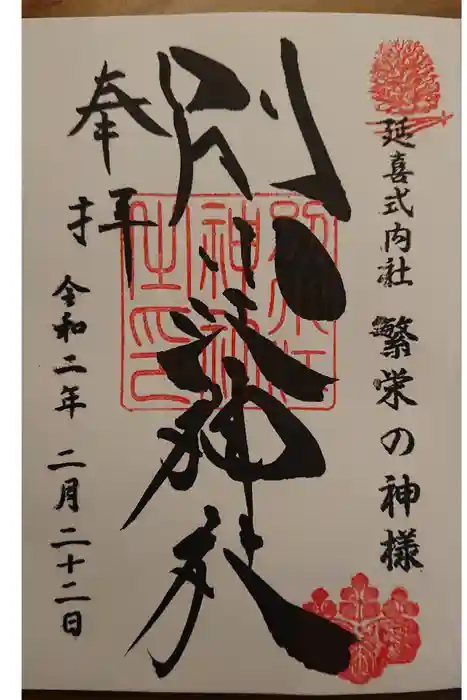 延喜式内社 繁栄の神様
別小江神社
奉拝
令和二年 二月二十二日